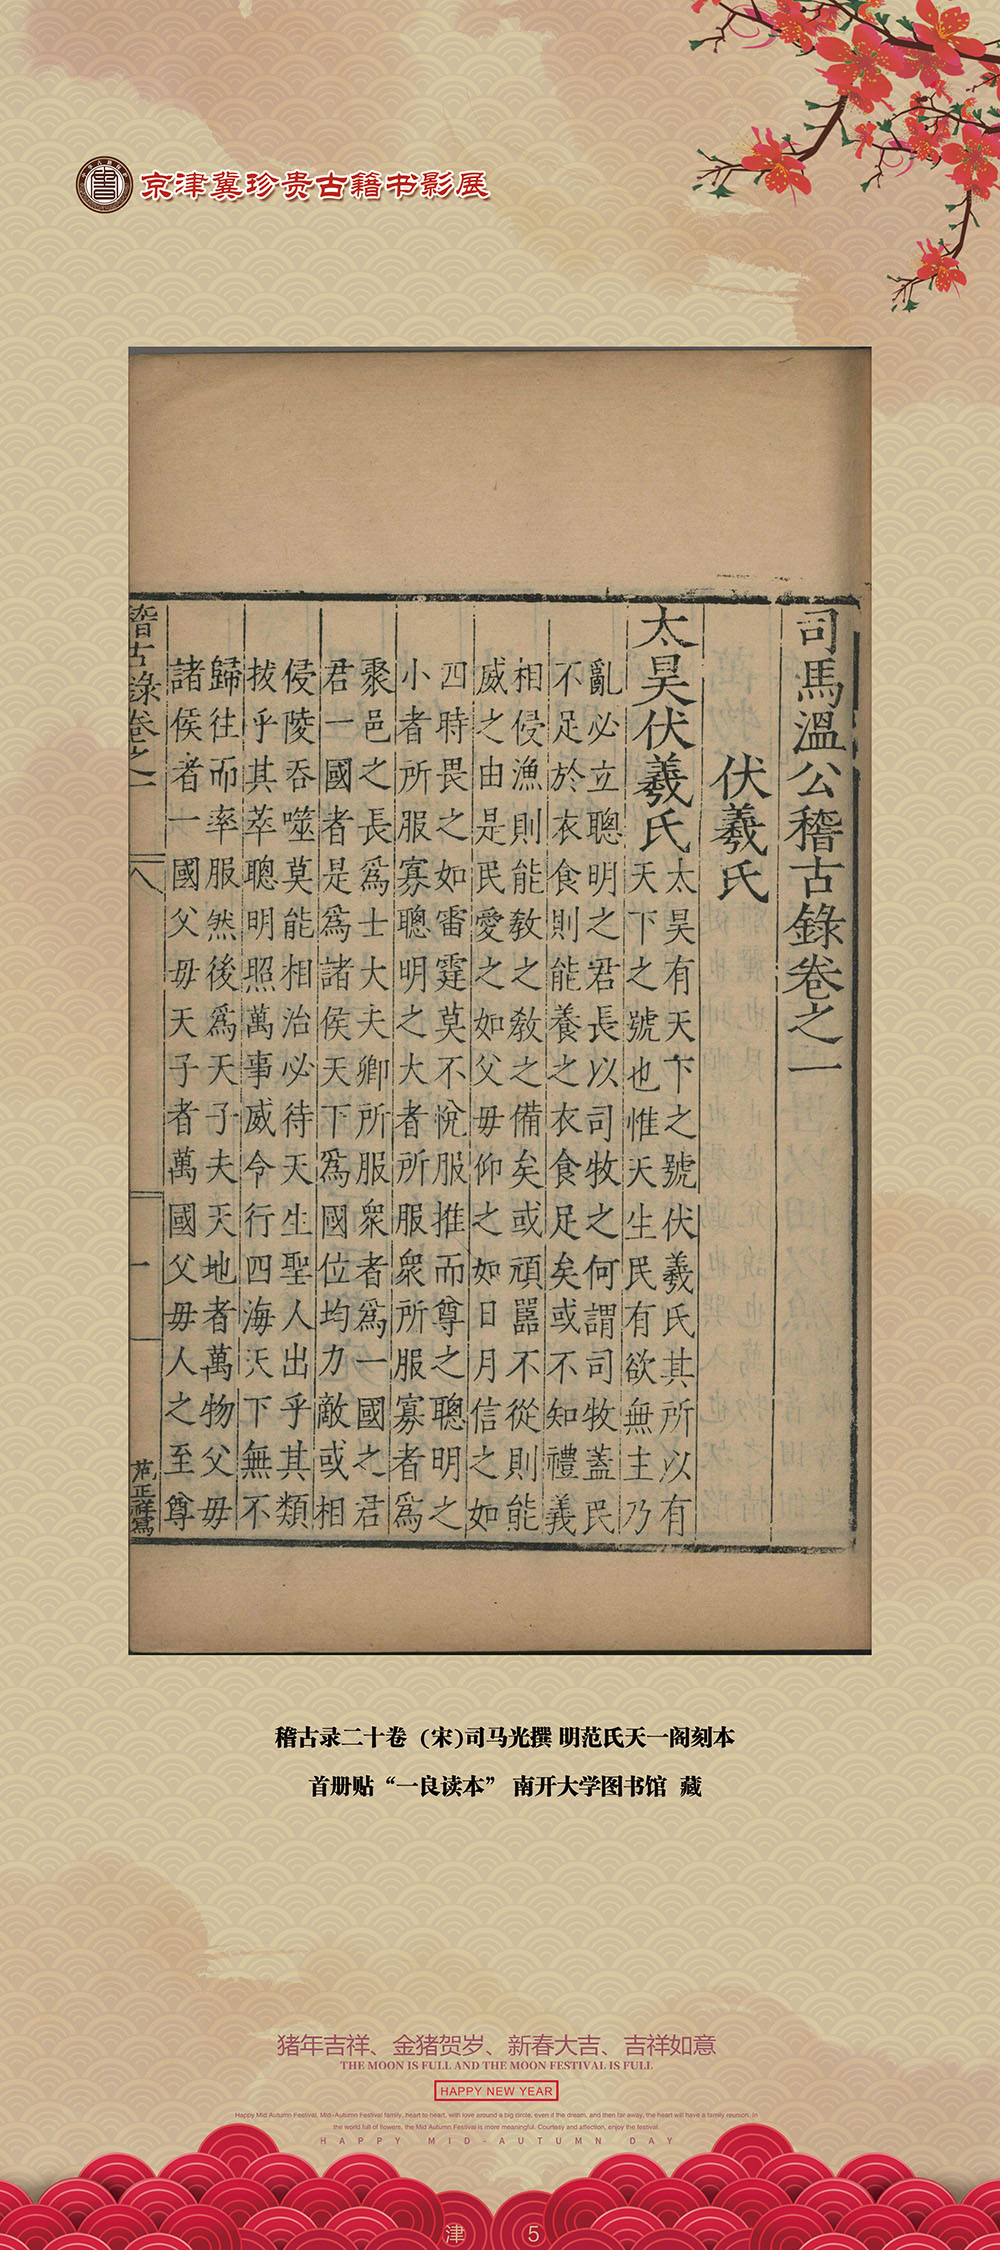 京津冀珍贵古籍书影展
司馬溫公稽古錄卷之一
伏羲氏
太昊伏羲氏
太昊有天下之號伏羲氏其所以有
天下之號也惟天生民有欲無主乃
亂必立聰明之君長以司牧之何謂司牧蓋民
不足於衣食則能養之衣食足矣或不知禮義
相侵漁則能教之教之備矣或頑嚚不從則能
威之由是民愛之如父毋仰之如日月信之如
四時畏之如雷霆莫不悅服推而尊之聰明之
小者所服寡聰明之大者所服衆所服寡者爲
聚邑之長爲士大夫卿所服衆者爲一國之君
君一國者是爲諸侯天下爲國位均力敵或相
侵陵吞噬莫能相治必待天生聖人出乎其類
拔乎其萃聰明照萬事威令行四海天下無不
歸往而率服然後爲天子夫天地者萬物父毋
諸侯者一國父毋天子者萬國父毋人之至尊
稽古錄卷之一
一
范正祥寫
稽古录二十卷 (宋)司马光撰 明范氏天一阁刻本
首册贴“一良读本” 南开大学图书馆 藏
猪年吉祥、金猪贺岁、新春大吉、吉祥如意
THE MOON IS FULL AND THE MOON FESTIVAL IS FULL
HAPPY NEW YEAR
Happy Mid Autumn Festival, Mid-Autumn Festival family, heart to heart, with love around a big circle, even if the dream, and then far away, the heart will have a family reunion. In
the world full of flowers, the Mid Autumn Festival is more meaningful. Courtesy and affection, enjoy the festival.
HAPPY MID-AUTUMN DAY
津 5